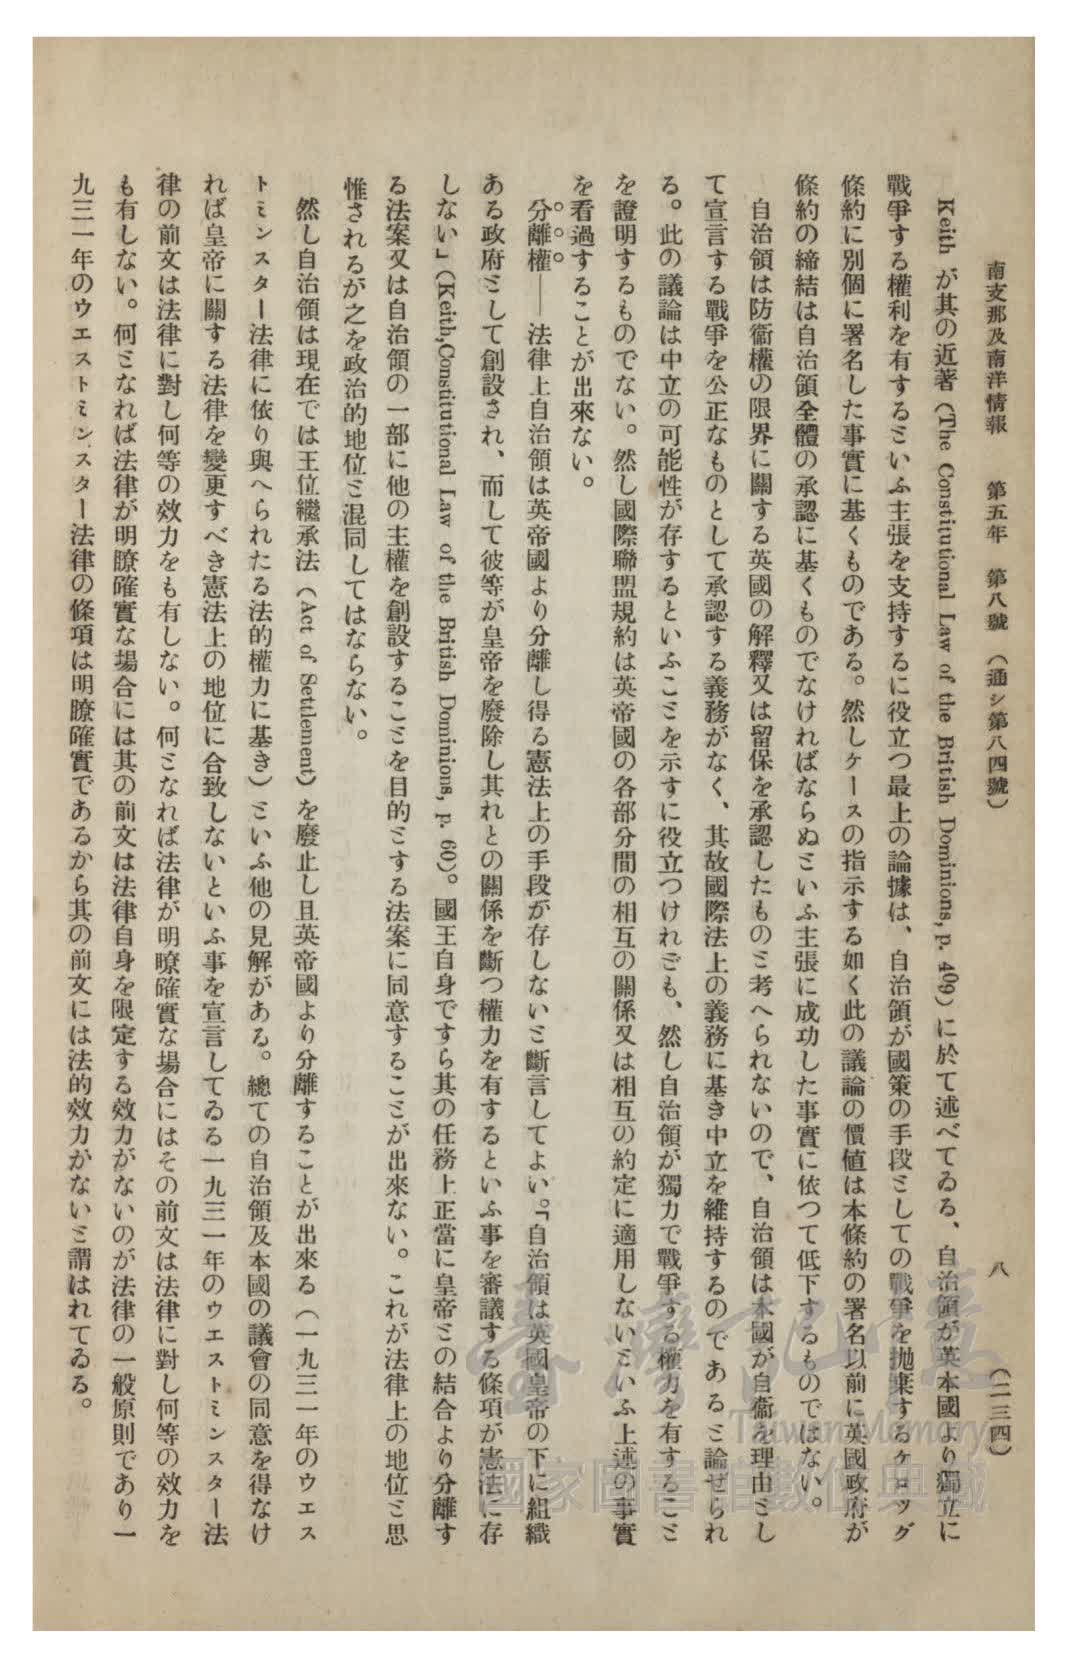 南支那及南洋情報　第五年　第八號　（通シ第八四號）　八　（二三四）
Keith が其の近著（The Constitutional Law of the British Dominions, p. 409）に於て述べてゐる、自治領が英本國より獨立に
戰爭する權利を有するといふ主張を支持するに役立つ最上の論據は、自治領が國策の手段としての戰爭を抛棄するケロッグ
條約に別個に署名した事實に基くものである。然しケースの指示する如く此の議論の價値は本條約の署名以前に英國政府が
條約の締結は自治領全體の承認に基くものでなければならぬといふ主張に成功した事實に依つて低下するものではない。
自治領は防衞權の限界に關する英國の解釋又は留保を承認したものと考へられないので、自治領は本國が自衞を理由とし
て宣言する戰爭を公正なものとして承認する義務がなく、其故國際法上の義務に基き中立を維持するのであると論ぜられ
る。此の議論は中立の可能性が存するといふことを示すに役立つけれども、然し自治領が獨力で戰爭する權力を有すること
を證明するものでない。然し國際聯盟規約は英帝國の各部分間の相互の關係又は相互の約定に適用しないといふ上述の事實
を看過することが出來ない。
分離權——法律上自治領は英帝國より分離し得る憲法上の手段が存しないと斷言してよい。「自治領は英國皇帝の下に組織
ある政府として創設され、而して彼等が皇帝を廢除し其れとの關係を斷つ權力を有するといふ事を審議する條項が憲法に存
しない」（Keith,Constitutional Law of the British Dominions, p. 60）。國王自身ですら其の任務上正當に皇帝との結合より分離す
る法案又は自治領の一部に他の主權を創設することを目的とする法案に同意することが出來ない。これが法律上の地位と思
惟されるが之を政治的地位と混同してはならない。
然し自治領は現在では王位繼承法（Act of Settlement）を廢止し且英帝國より分離することが出來る（一九三一年のウエス
トミンスター法律に依り與へられたる法的權力に基き）といふ他の見解がある。總ての自治領及本國の議會の同意を得なけ
れば皇帝に關する法律を變更すべき憲法上の地位に合致しないといふ事を宣言してゐる一九三一年のウエストミンスター法
律の前文は法律に對し何等の效力をも有しない。何となれば法律が明瞭確實な場合にはその前文は法律に對し何等の效力を
も有しない。何となれば法律が明瞭確實な場合には其の前文は法律自身を限定する效力がないのが法律の一般原則であり一
九三一年のウエストミンスター法律の條項は明瞭確實であるから其の前文には法的效力がないと謂はれてゐる。
臺灣記憶
Taiwan Memory
國家圖書館數位典藏